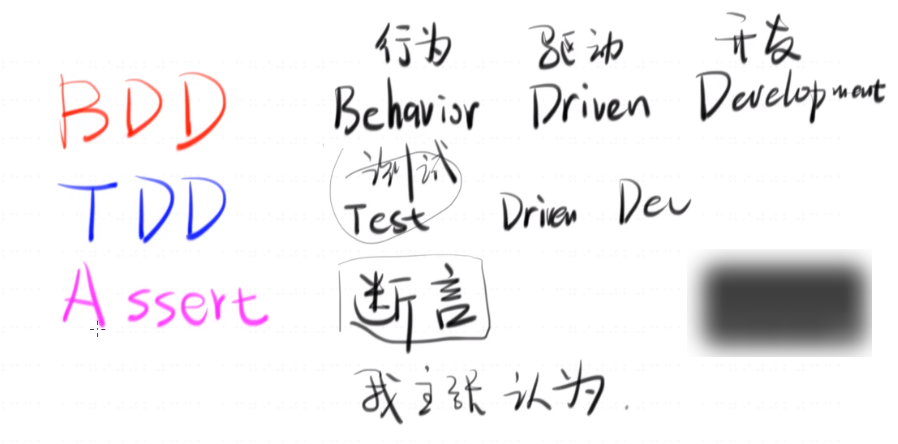 行为 驱动 开发
BDD Behavior Driven Development
测试
TDD Test Driven Dev
Assert 断言
我主张认为.